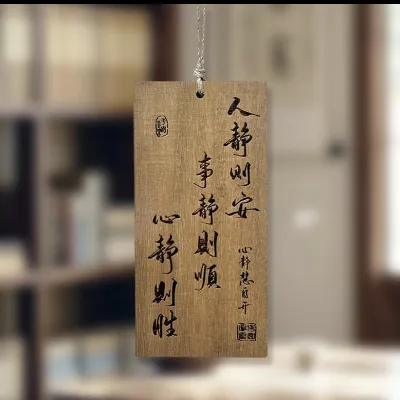 人静则安
事静則順
心静則胜
心静慧自开